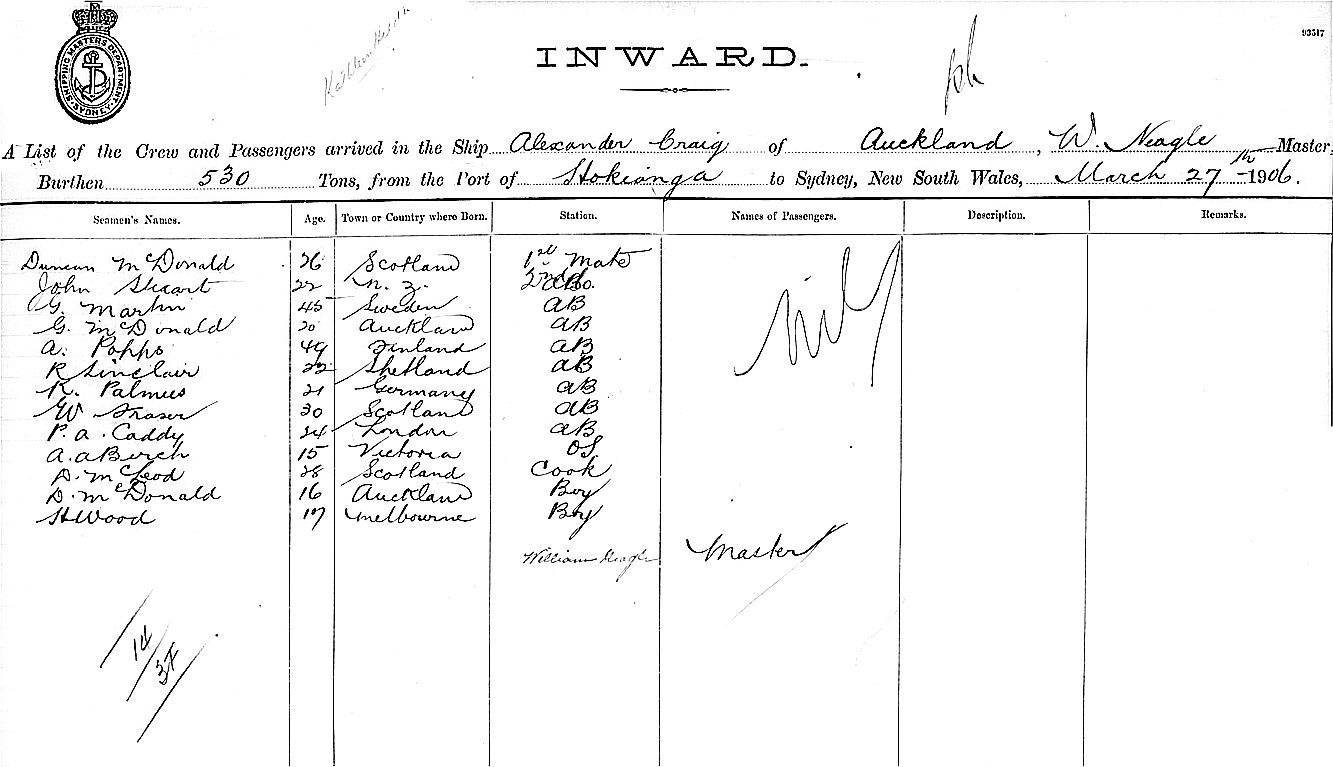 93517
SHIPPING MASTERS DEPARTMENT. SYDNEY.
INWARD.
A List of the Crew and Passengers arrived in the Ship Alexander Craig of Auckland, W. Neagle Master,
Burthen 530 Tons, from the Port of Hokianga to Sydney, New South Wales, March 27th 1906.
Seamen's Names. Age. Town or Country where Born. Station. Names of Passengers. Description. Remarks.
Duncan McDonald 26 Scotland 1st Mate Nil
John Stuart 22 N. Z. 2nd Do.
G. Martin 45 Sweden AB
G. McDonald 20 Auckland AB
A. Popps 49 Finland AB
R Sinclair 22 Shetland AB
K. Palmus 21 Germany AB
W Fraser 30 Scotland AB
P. A. Caddy 24 London AB
A. A Birch 15 Victoria OS
D. McLeod 28 Scotland Cook
D. McDonald 16 Auckland Boy
H Wood 17 Melbourne Boy
William Neagle Master
14